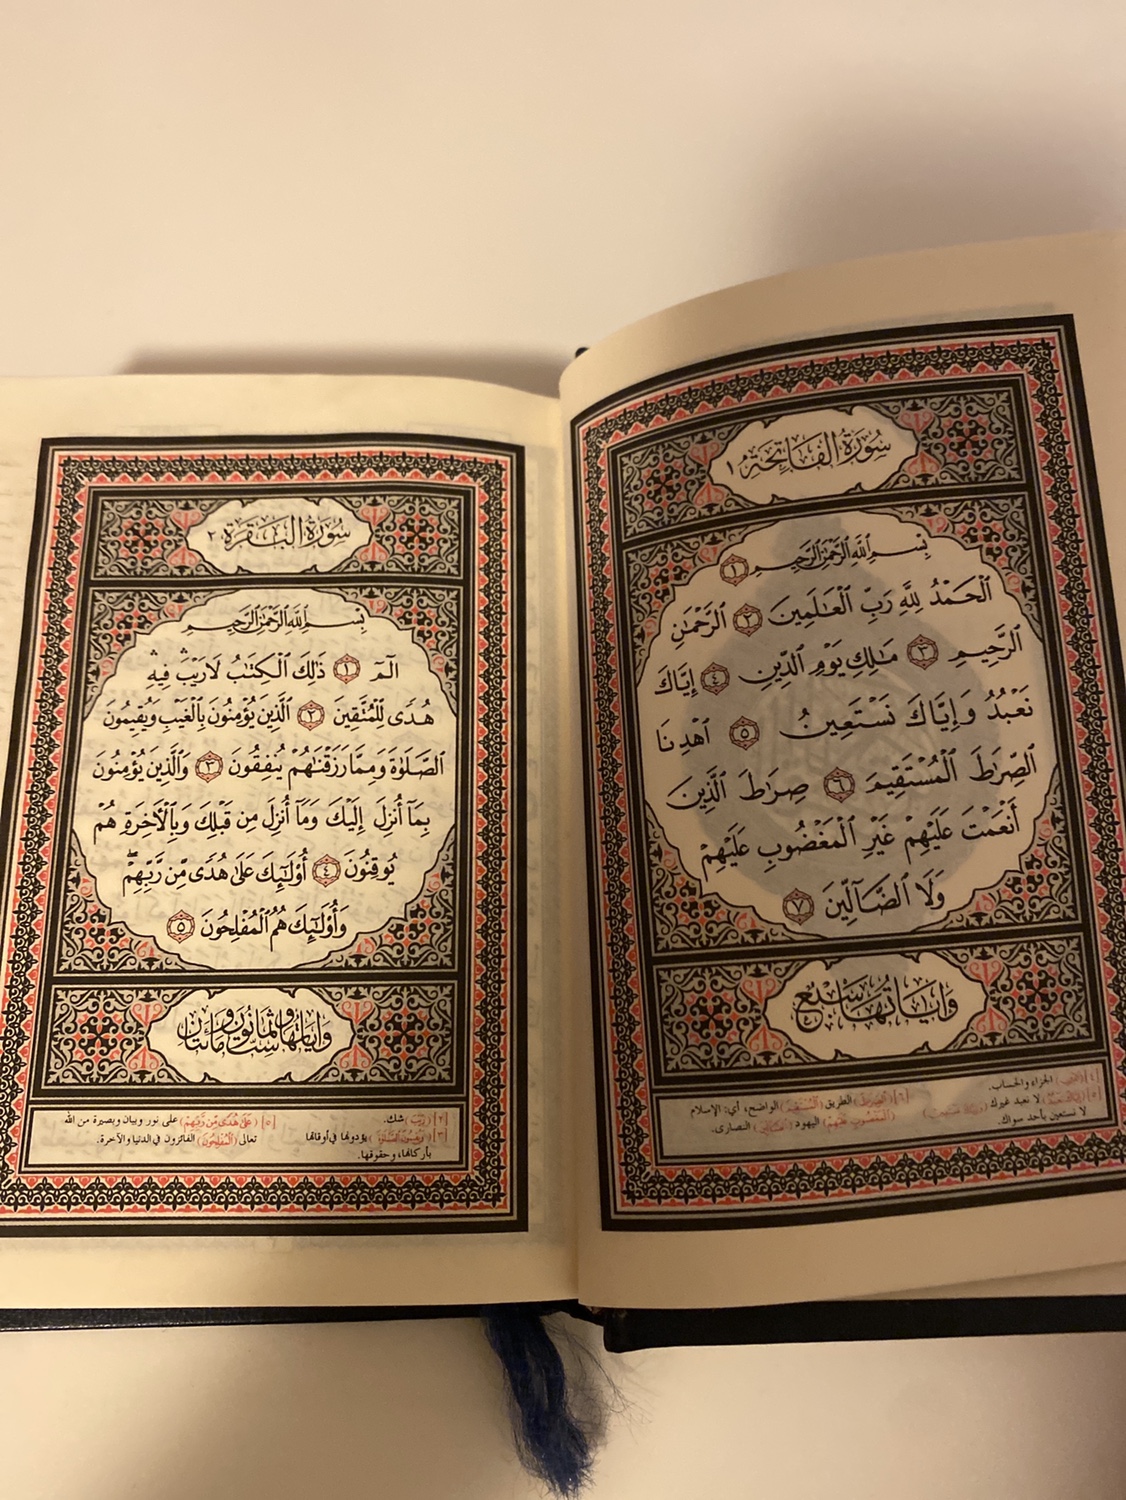 سُورَةُ الْفَاتِحَةِ ١
بِسْمِ ٱللَّهِ ٱلرَّحْمَٰنِ ٱلرَّحِيمِ ١
ٱلْحَمْدُ لِلَّهِ رَبِّ ٱلْعَٰلَمِينَ ٢ ٱلرَّحْمَٰنِ
ٱلرَّحِيمِ ٣ مَٰلِكِ يَوْمِ ٱلدِّينِ ٤ إِيَّاكَ
نَعْبُدُ وَإِيَّاكَ نَسْتَعِينُ ٥ ٱهْدِنَا
ٱلصِّرَٰطَ ٱلْمُسْتَقِيمَ ٦ صِرَٰطَ ٱلَّذِينَ
أَنْعَمْتَ عَلَيْهِمْ غَيْرِ ٱلْمَغْضُوبِ عَلَيْهِمْ
وَلَا ٱلضَّآلِّينَ ٧
وَآيَاتُهَا سَبْعٌ
[٤] الجزاء والحساب.
[٥] لا نعبد غيرك
لا نستعين بأحد سواك.
[٦] (ٱلصِّرَٰطَ) الطريق (ٱلْمُسْتَقِيمَ) الواضح، أي: الإسلام
(ٱلْمَغْضُوبِ عَلَيْهِمْ) اليهود (ٱلضَّآلِّينَ) النصارى.
سُورَةُ الْبَقَرَةِ ٢
بِسْمِ ٱللَّهِ ٱلرَّحْمَٰنِ ٱلرَّحِيمِ
الٓمٓ ١ ذَٰلِكَ ٱلْكِتَٰبُ لَا رَيْبَ ۛ فِيهِ ۛ
هُدًى لِّلْمُتَّقِينَ ٢ ٱلَّذِينَ يُؤْمِنُونَ بِٱلْغَيْبِ وَيُقِيمُونَ
ٱلصَّلَوٰةَ وَمِمَّا رَزَقْنَٰهُمْ يُنفِقُونَ ٣ وَٱلَّذِينَ يُؤْمِنُونَ
بِمَآ أُنزِلَ إِلَيْكَ وَمَآ أُنزِلَ مِن قَبْلِكَ وَبِٱلْأَخِرَةِ هُمْ
يُوقِنُونَ ٤ أُو۟لَٰٓئِكَ عَلَىٰ هُدًى مِّن رَّبِّهِمْ ۖ
وَأُو۟لَٰٓئِكَ هُمُ ٱلْمُفْلِحُونَ ٥
وَآيَاتُهَا سِتٌّ وَثَمَانُونَ وَمِائَتَانِ
[٢] (رَيْبَ) شك.
[٣] (وَيُقِيمُونَ ٱلصَّلَوٰةَ) يؤدونها في أوقاتها
بأركانها، وحقوقها.
[٥] (عَلَىٰ هُدًى مِّن رَّبِّهِمْ) على نور وبيان وبصيرة من الله
تعالى (ٱلْمُفْلِحُونَ) الفائزون في الدنيا والآخرة.